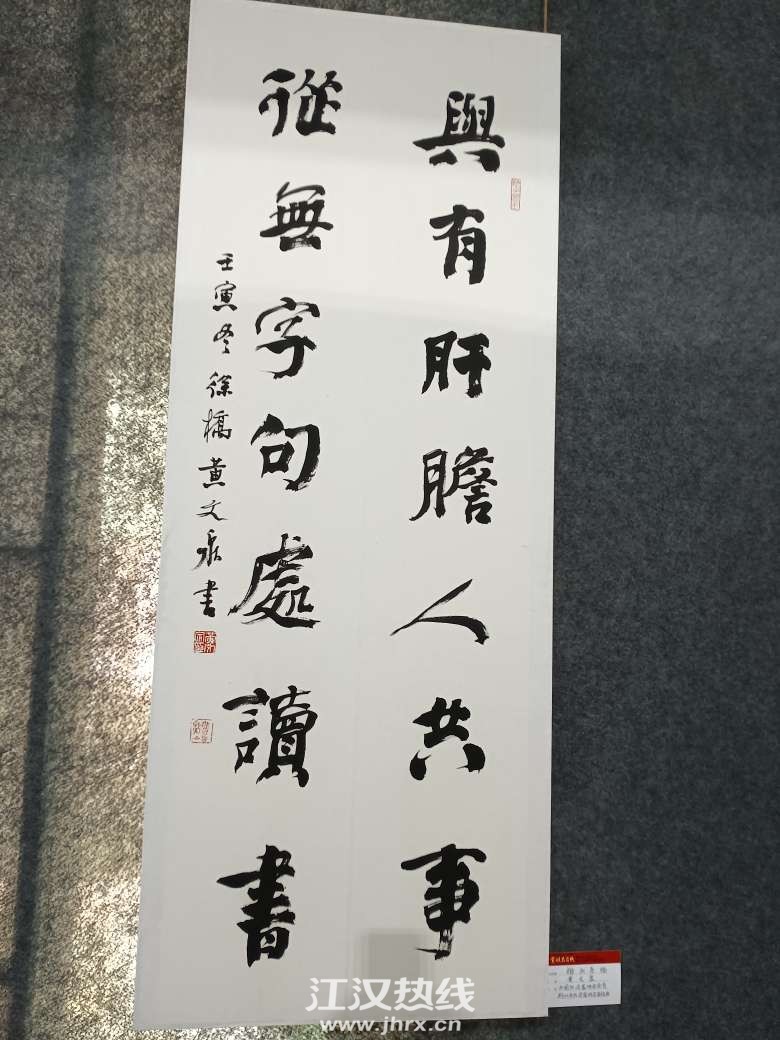 與有肝膽人共事
從無字句處讀書
壬寅冬徐橋黄文泉書
江汉热线
www.jhrx.cn